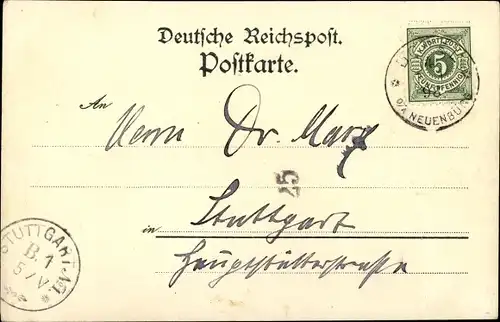 Deutsche Reichspost.
Postkarte.
K. WÜRTT. POST
5
FÜNF PFENNIG
98
O/A NEUENBÜRG
An
Herrn Dr. Marx
25
in Stuttgart
Hauptstätterstrasse
STUTTGART No 1
B. 1
5/V